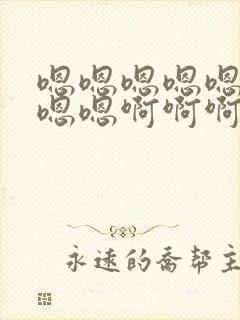 嗯嗯嗯嗯嗯
嗯嗯啊啊啊
永远的乔帮主